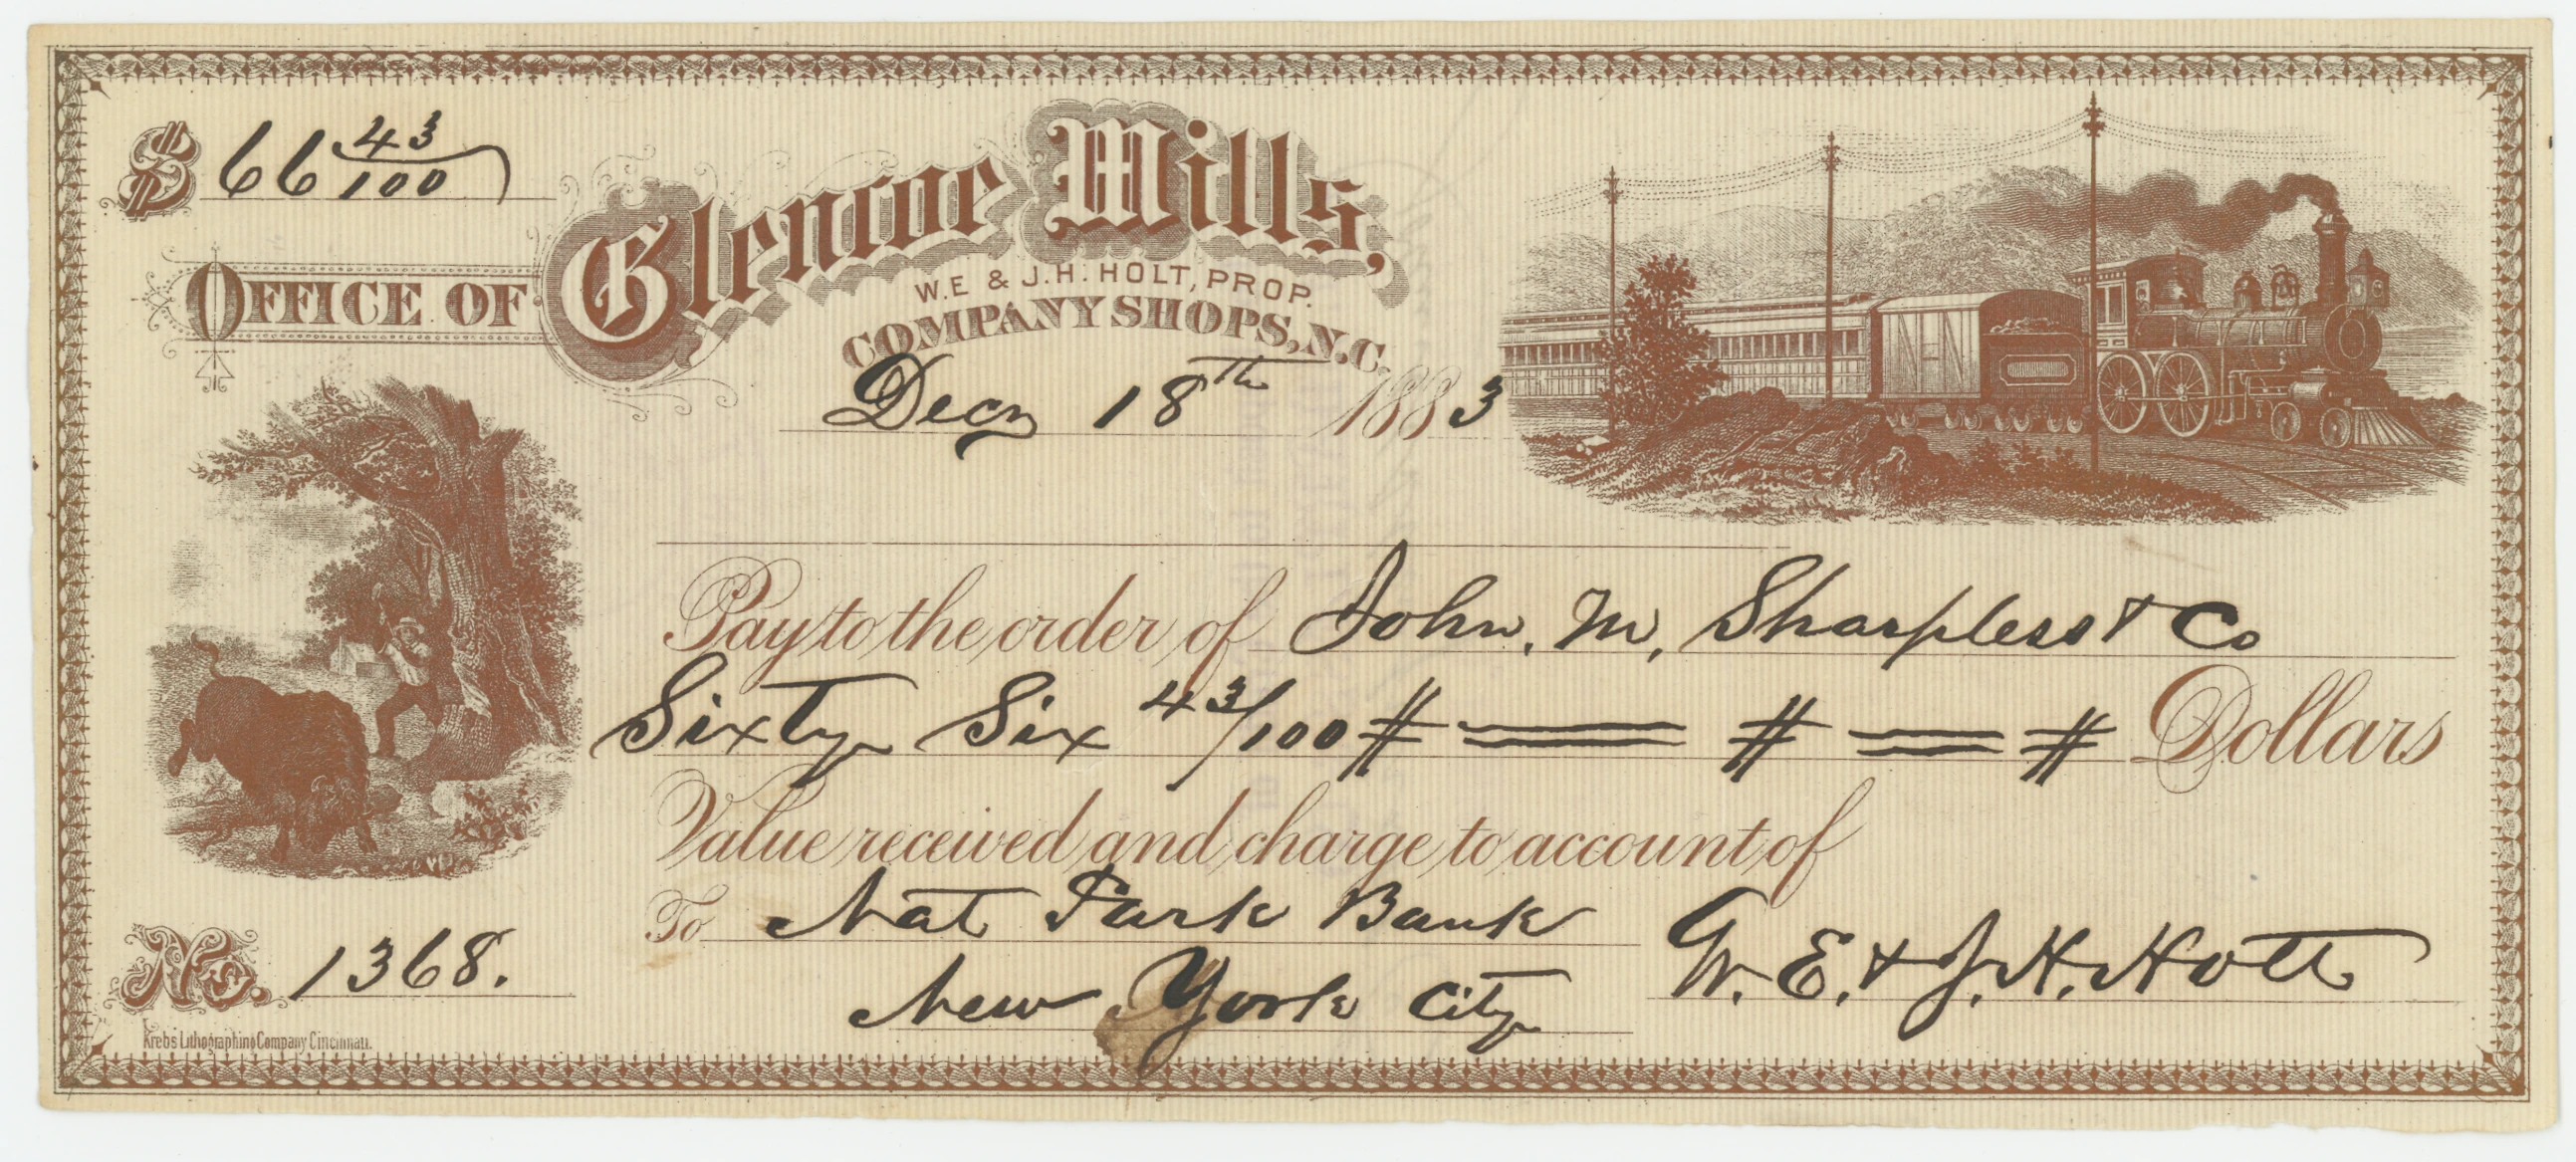 $ 66 43/100
OFFICE OF Glencoe Mills,
W.E & J.H. HOLT, PROP.
COMPANY SHOPS, N.C.
Decr 18th 1883
Pay to the order of John. M, Sharpless & Co
Sixty Six 43/100 # == # == # Dollars
Value received and charge to account of
To Nat Park Bank
New York City
W. E. & J. H. Holt
No. 1368.
Krebs Lithographing Company Cincinnati.